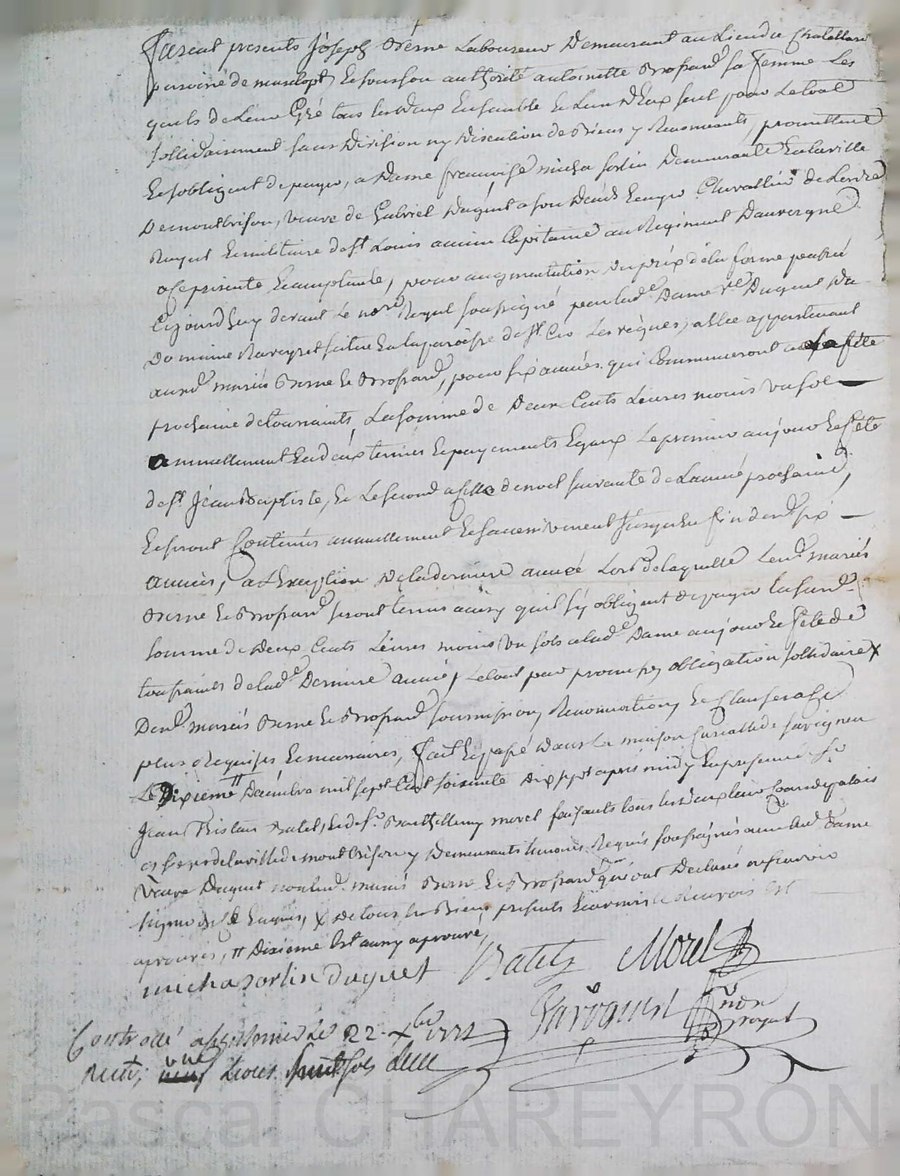 furent presents Joseph Verne Laboureur Demeurant au Lieu du Chatelard
paroisse de marclopt, Et sous son authorité antoinette Brossard sa femme Les
quels de Leur Gré tous Les deux Ensemble Et L'un d'eux seul pour Le tout
sollidairement sans Division ny Discution de Biens y Renonceants, promettent
Et s'obligent de payer, a Dame françoise micha sorlin Demeurante En la ville
De montbrison, veuve de Gabriel Duguet a son Décès Ecuyer Chevallier de L'ordre
Royal Et militaire de st Louis ancien Capitaine au Régiment D'auvergne
a ce présente Et acceptante, pour augmentation du prix de la ferme passée
Cejourd'huy devant Le nore Royal soussigné par lade Dame ve Duguet Du
Domaine situé En la paroisse de st Les a Elle appartenant
auxds mariés Verne Et Brossard, pour six années qui Commenceront a La fête
prochaine de toussaints, La somme de Deux Cents Livres moins un sol
annuellement En deux termes Et payements Egaux Le premier au jour Et fête
de st Jean Baptiste, Et Le second a fête de noel suivante de L'année prochaine,
Et seront Continués annuellement Et successivement jusqu'en fin desds six
années, a L'Exception de la derniere année Lors de laquelle Lesds mariés
Verne Et Brossard seront tenus ainsy qu'il s'y obligent de payer La susde
somme de Deux Cents Livres moins un sols a lade Dame au jour Et fête de
toussaints de lade Derniere année, Le tout par promesses obligation sollidaire X
Desds mariés Verne Et Brossard soumissions Renonciations Et Clauses a ce
plus Requises Et necessaires, fait Et passé Dans La maison Curialle de savignieu
Le Dixieme # Décembre mil sept Cent soixante Dix sept après midy En presence de sr
Jean Batel, Et de sr Barthellemy morel faisants tous Les deux Leur
de la ville de montbrison y Demeurants temoins Requis soussignés avec lade Dame
veuve Duguet non lesds mariés Verne Et Brossard qui ont Déclaré ne sçavoir
signer de ce Enquis, X De tous Les Biens présents Et avenir
aprouvés, # Dixieme Est aussy aprouvé,
micha sorlin duguet Batel Morel
nore
royal
Controllé a le 22 Xbre 1777
Reçu une Livre huit sols